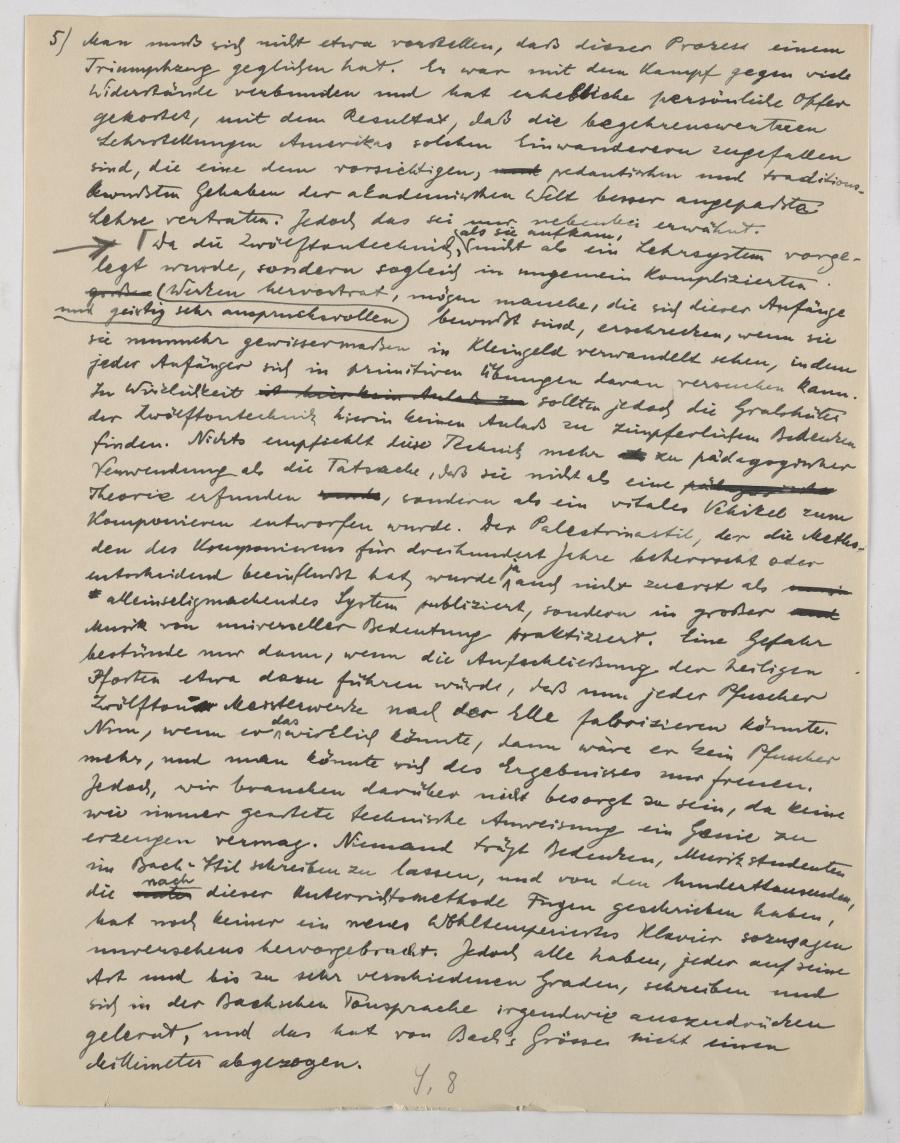 5) Man muß sich nicht etwa vorstellen, daß dieser Prozess einem
Triumphzug geglichen hat. Er war mit dem Kampf gegen viele
Widerstände verbunden und hat erhebliche persönliche Opfer
gekostet, mit dem Resultat, daß die begehrenswerteren
Lehrstellungen Amerikas solchen Einwanderern zugefallen
sind, die eine dem vorsichtigen, und pedantischen und traditions-
bewußten Gehaben der akademischen Welt besser angepaßte
Lehre vertraten. Jedoch das sei nur nebenbei erwähnt.
als sie aufkam,
Da die Zwölftontechnik, nicht als ein Lehrsystem vorge-
legt wurde, sondern sogleich in ungemein komplizierten
große Werken hervortrat, mögen manche, die sich dieser Anfänge
und geistig sehr anspruchsvollen bewußt sind, erschrecken, wenn sie
sie nunmehr gewissermaßen in Kleingeld verwandelt sehen, indem
jeder Anfänger sich in primitiven Übungen daran versuchen kann.
In Wirklichkeit ist hier kein Anlaß zu sollten jedoch die Gralshüter
der Zwölftontechnik hierin keinen Anlaß zu zimperlichen Bedenken
finden. Nichts empfiehlt diese Technik mehr zu pädagogischer
Verwendung als die Tatsache, daß sie nicht als eine pädagogische
Theorie erfunden wurde, sondern als ein vitales Vehikel zum
Komponieren entworfen wurde. Der Palestrinastil, der die Metho-
den des Komponierens für dreihundert Jahre beherrscht oder
entscheidend beeinflußt hat, wurde ja auch nicht zuerst als
alleinseligmachendes System publiziert, sondern in großer
Musik von universeller Bedeutung praktiziert. Eine Gefahr
bestünde nur dann, wenn die Aufschließung der heiligen
Pforten etwa dazu führen würde, daß nun jeder Pfuscher
Zwölfton-Meisterwerke nach der Elle fabrizieren könnte.
Nun, wenn er das wirklich könnte, dann wäre er kein Pfuscher
mehr, und man könnte sich des Ergebnisses nur freuen.
Jedoch, wir brauchen darüber nicht besorgt zu sein, da keine
wie immer geartete technische Anweisung ein Genie zu
erzeugen vermag. Niemand trägt Bedenken, Musikstudenten
im Bach-Stil schreiben zu lassen, und von den Hunderttausenden,
die nach dieser Unterrichtsmethode Fugen geschrieben haben,
hat noch keiner ein neues Wohltemperiertes Klavier sozusagen
unversehens hervorgebracht. Jedoch alle haben, jeder auf seine
Art und bis zu sehr verschiedenen Graden, schreiben und
sich in der Bachschen Tonsprache irgendwie auszudrücken
gelernt, und das hat von Bachs Grösse nicht einen
Millimeter abgezogen.
S. 8